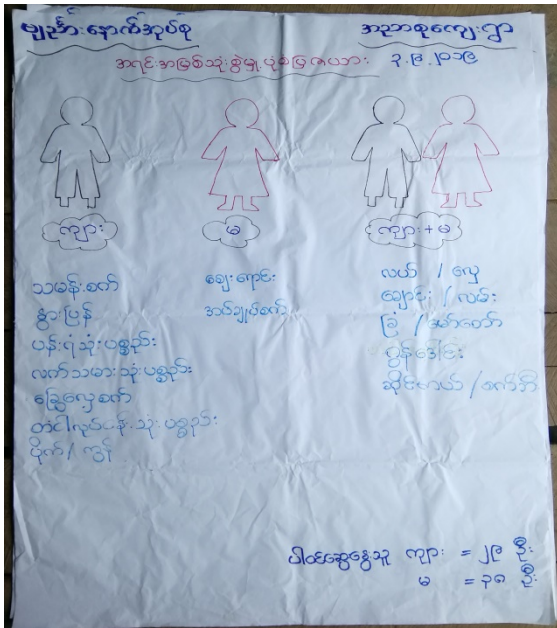 မျှဉ်းနောက်အုပ်စု အညာစုကျေးရွာ
အရင်းအမြစ်သုံးစွဲမှုပုံစံပြဇယား ၃.၉.၂၀၁၉
ကျား မ ကျား + မ
သမန်းစက်
နွားပြန်
ပန်းရံသုံးပစ္စည်း
လက်သမားသုံးပစ္စည်း
ခြွေလှေ့စက်
တံငါလုပ်ငန်းသုံးပစ္စည်း
ပိုက် / ကွန်
ဈေးရောင်း
အပ်ချုပ်စက်
လယ် / လှေ
ချောင်း / လမ်း
ခြံ / မော်တော်
ဖွန်းဒေါင်း
ဆိုင်ကယ် / စက်ဘီး
ပါဝင်ဆွေးနွေးသူ ကျား = ၂၉ ဦး
မ = ၃၈ ဦး